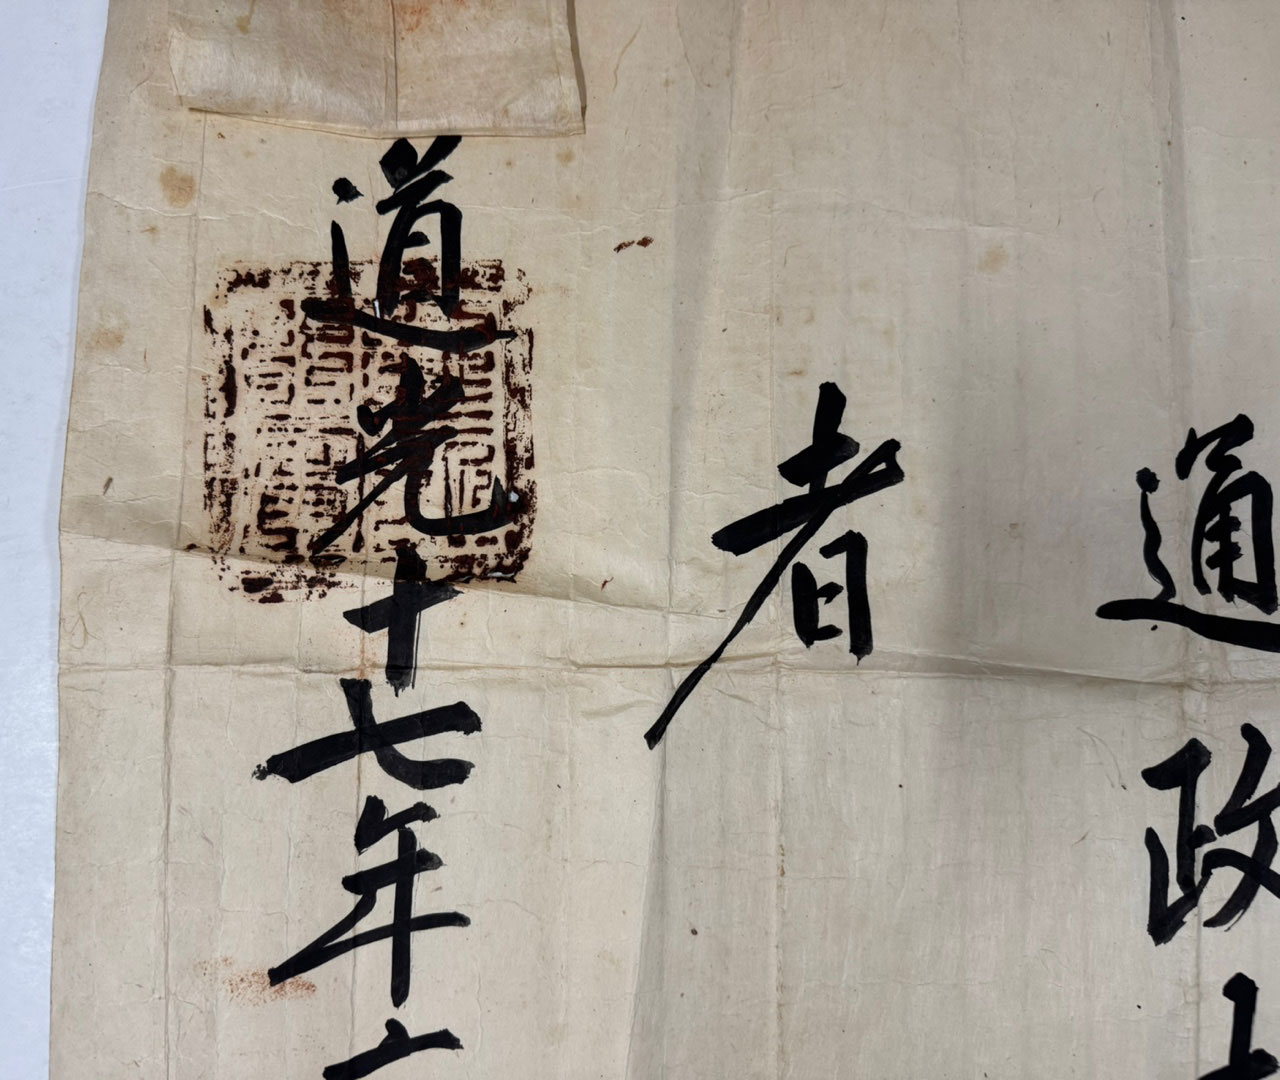 通政
者
道光十七年六